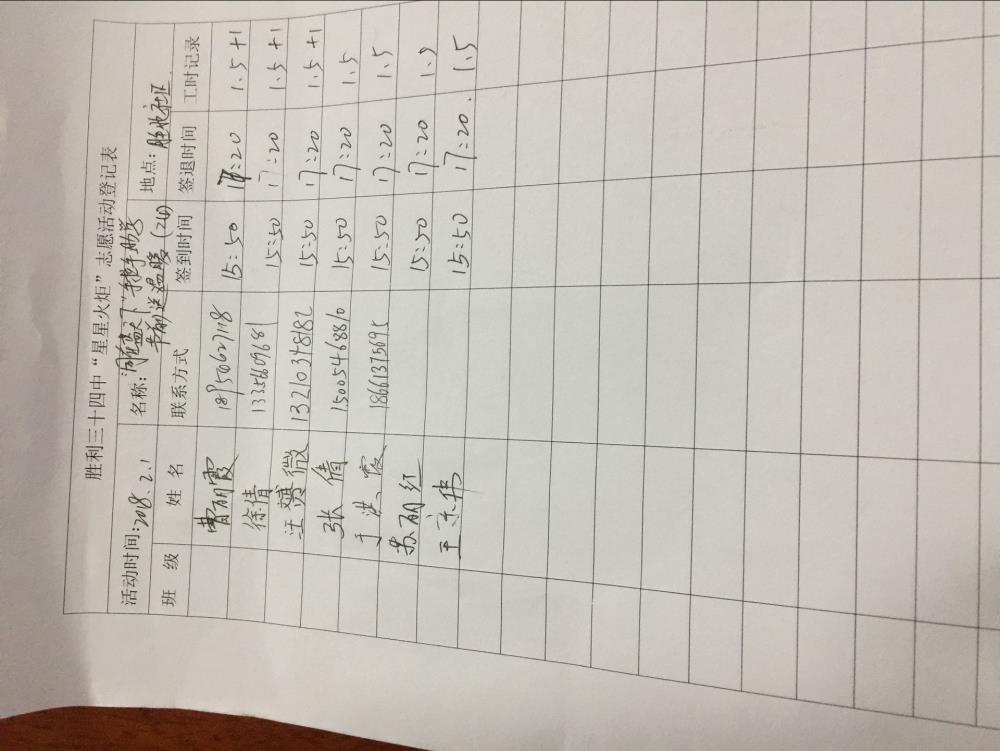 胜利三十四中“星星火炬”志愿活动登记表
活动时间:2018.2.1 名称: 手拉手助学 节前送温暖(24) 地点:胜北社区
班 级 姓 名 联系方式 签到时间 签退时间 工时记录
曹丽霞 18950627118 15:50 17:20 1.5+1
徐倩 1335660968 15:50 17:20 1.5+1
汪赟微 13210348182 15:50 17:20 1.5+1
张倩 15005468810 15:50 17:20 1.5
于洪霞 18661375695 15:50 17:20 1.5
苏丽红 15:50 17:20 1.5
王京伟 15:50 17:20. 1.5